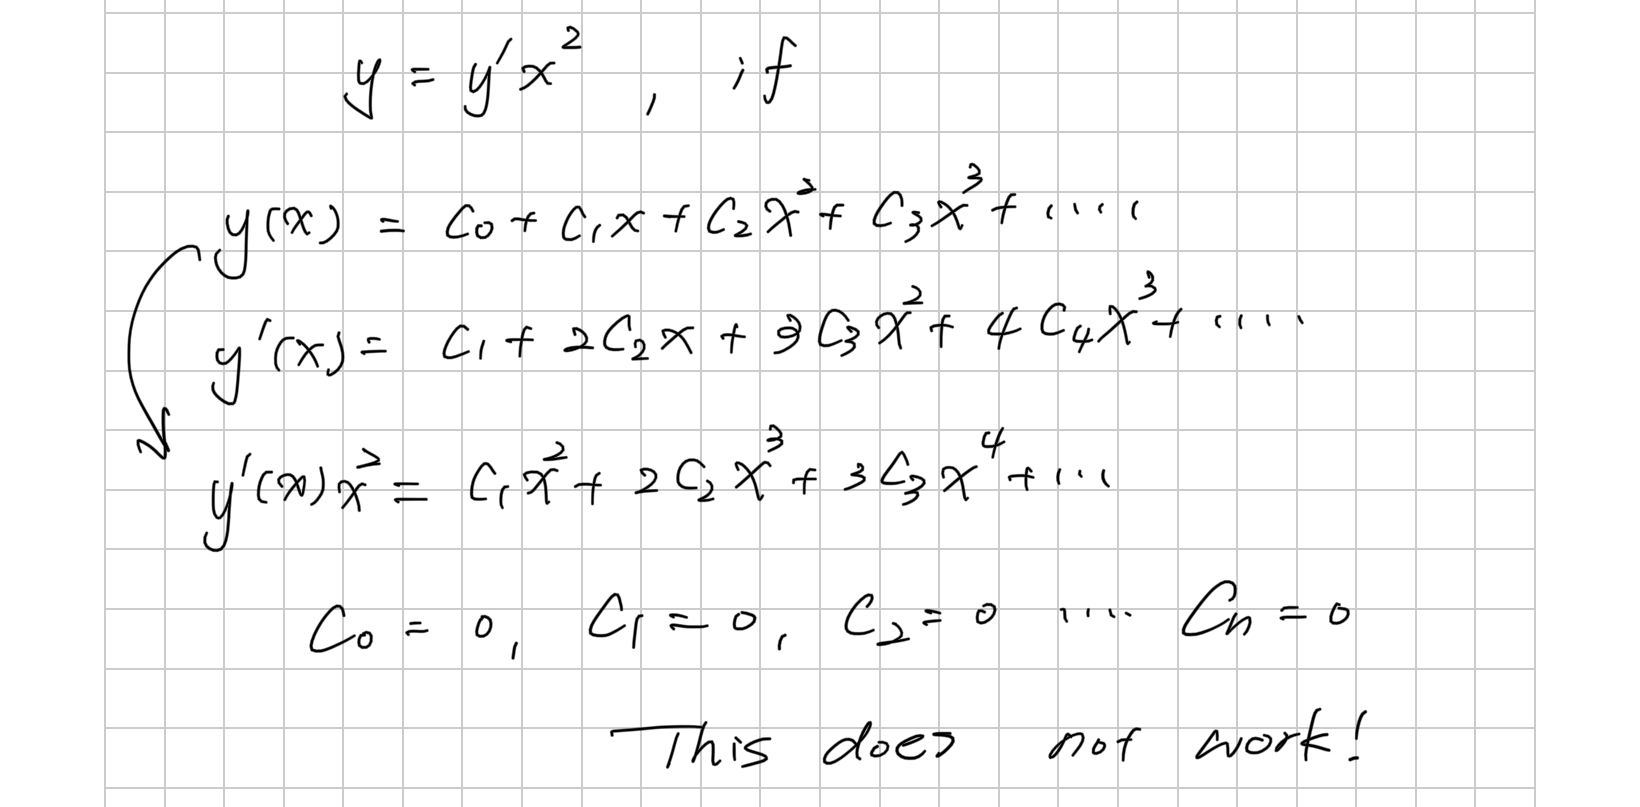 y = y'x², if
y(x) = C₀ + C₁x + C₂x² + C₃x³ + ....
y'(x) = C₁ + 2C₂x + 3C₃x² + 4C₄x³ + ....
y'(x)x² = C₁x² + 2C₂x³ + 3C₃x⁴ + ...
C₀ = 0, C₁ = 0, C₂ = 0 .... Cₙ = 0
This does not work!